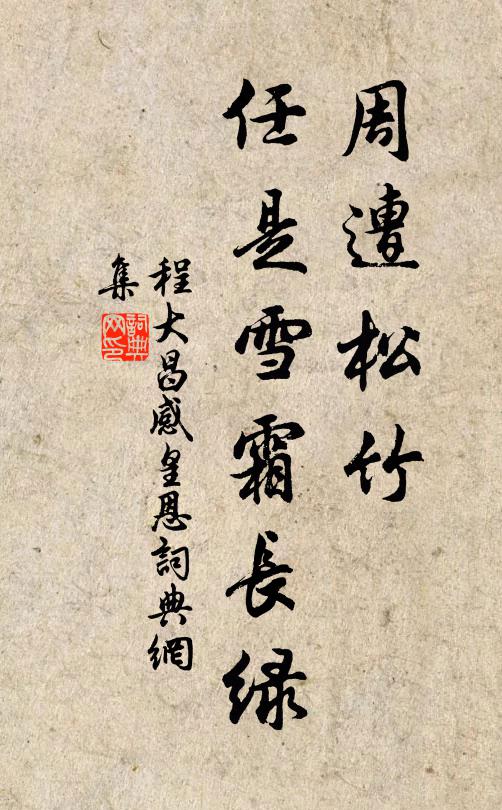 周遭松竹
任是雪霜長綠
程大昌感皇恩詞典網
集
詞典
网印